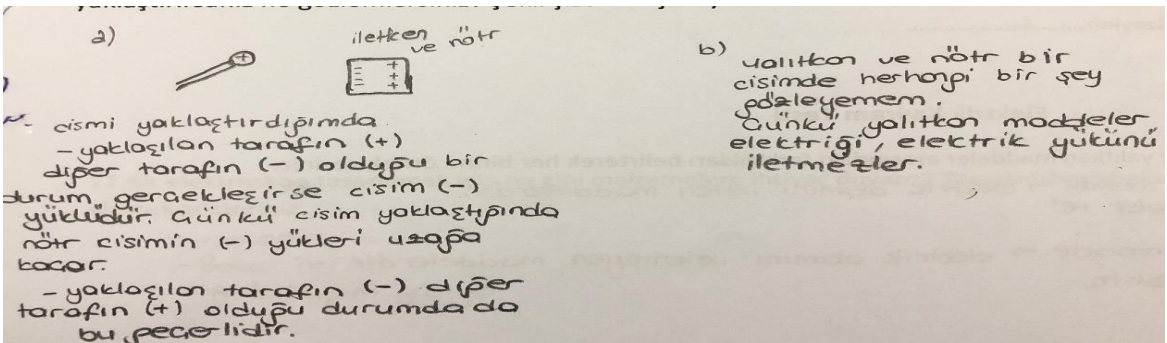 a)
+
iletken
ve nötr
- +
- +
- +
cismi yaklaştırdığımda
- yaklaşılan tarafın (+)
diğer tarafın (-) olduğu bir
durum gerçekleşirse cisim (-)
yüklüdür. Çünkü cisim yaklaştığında
nötr cisimin (-) yükleri uzağa
kaçar.
- yaklaşılan tarafın (-) diğer
tarafın (+) olduğu durumda da
bu geçerlidir.
b)
yalıtkan ve nötr bir
cisimde herhangi bir şey
gözleyemem.
Çünkü yalıtkan maddeler
elektriği, elektrik yükünü
iletmezler.